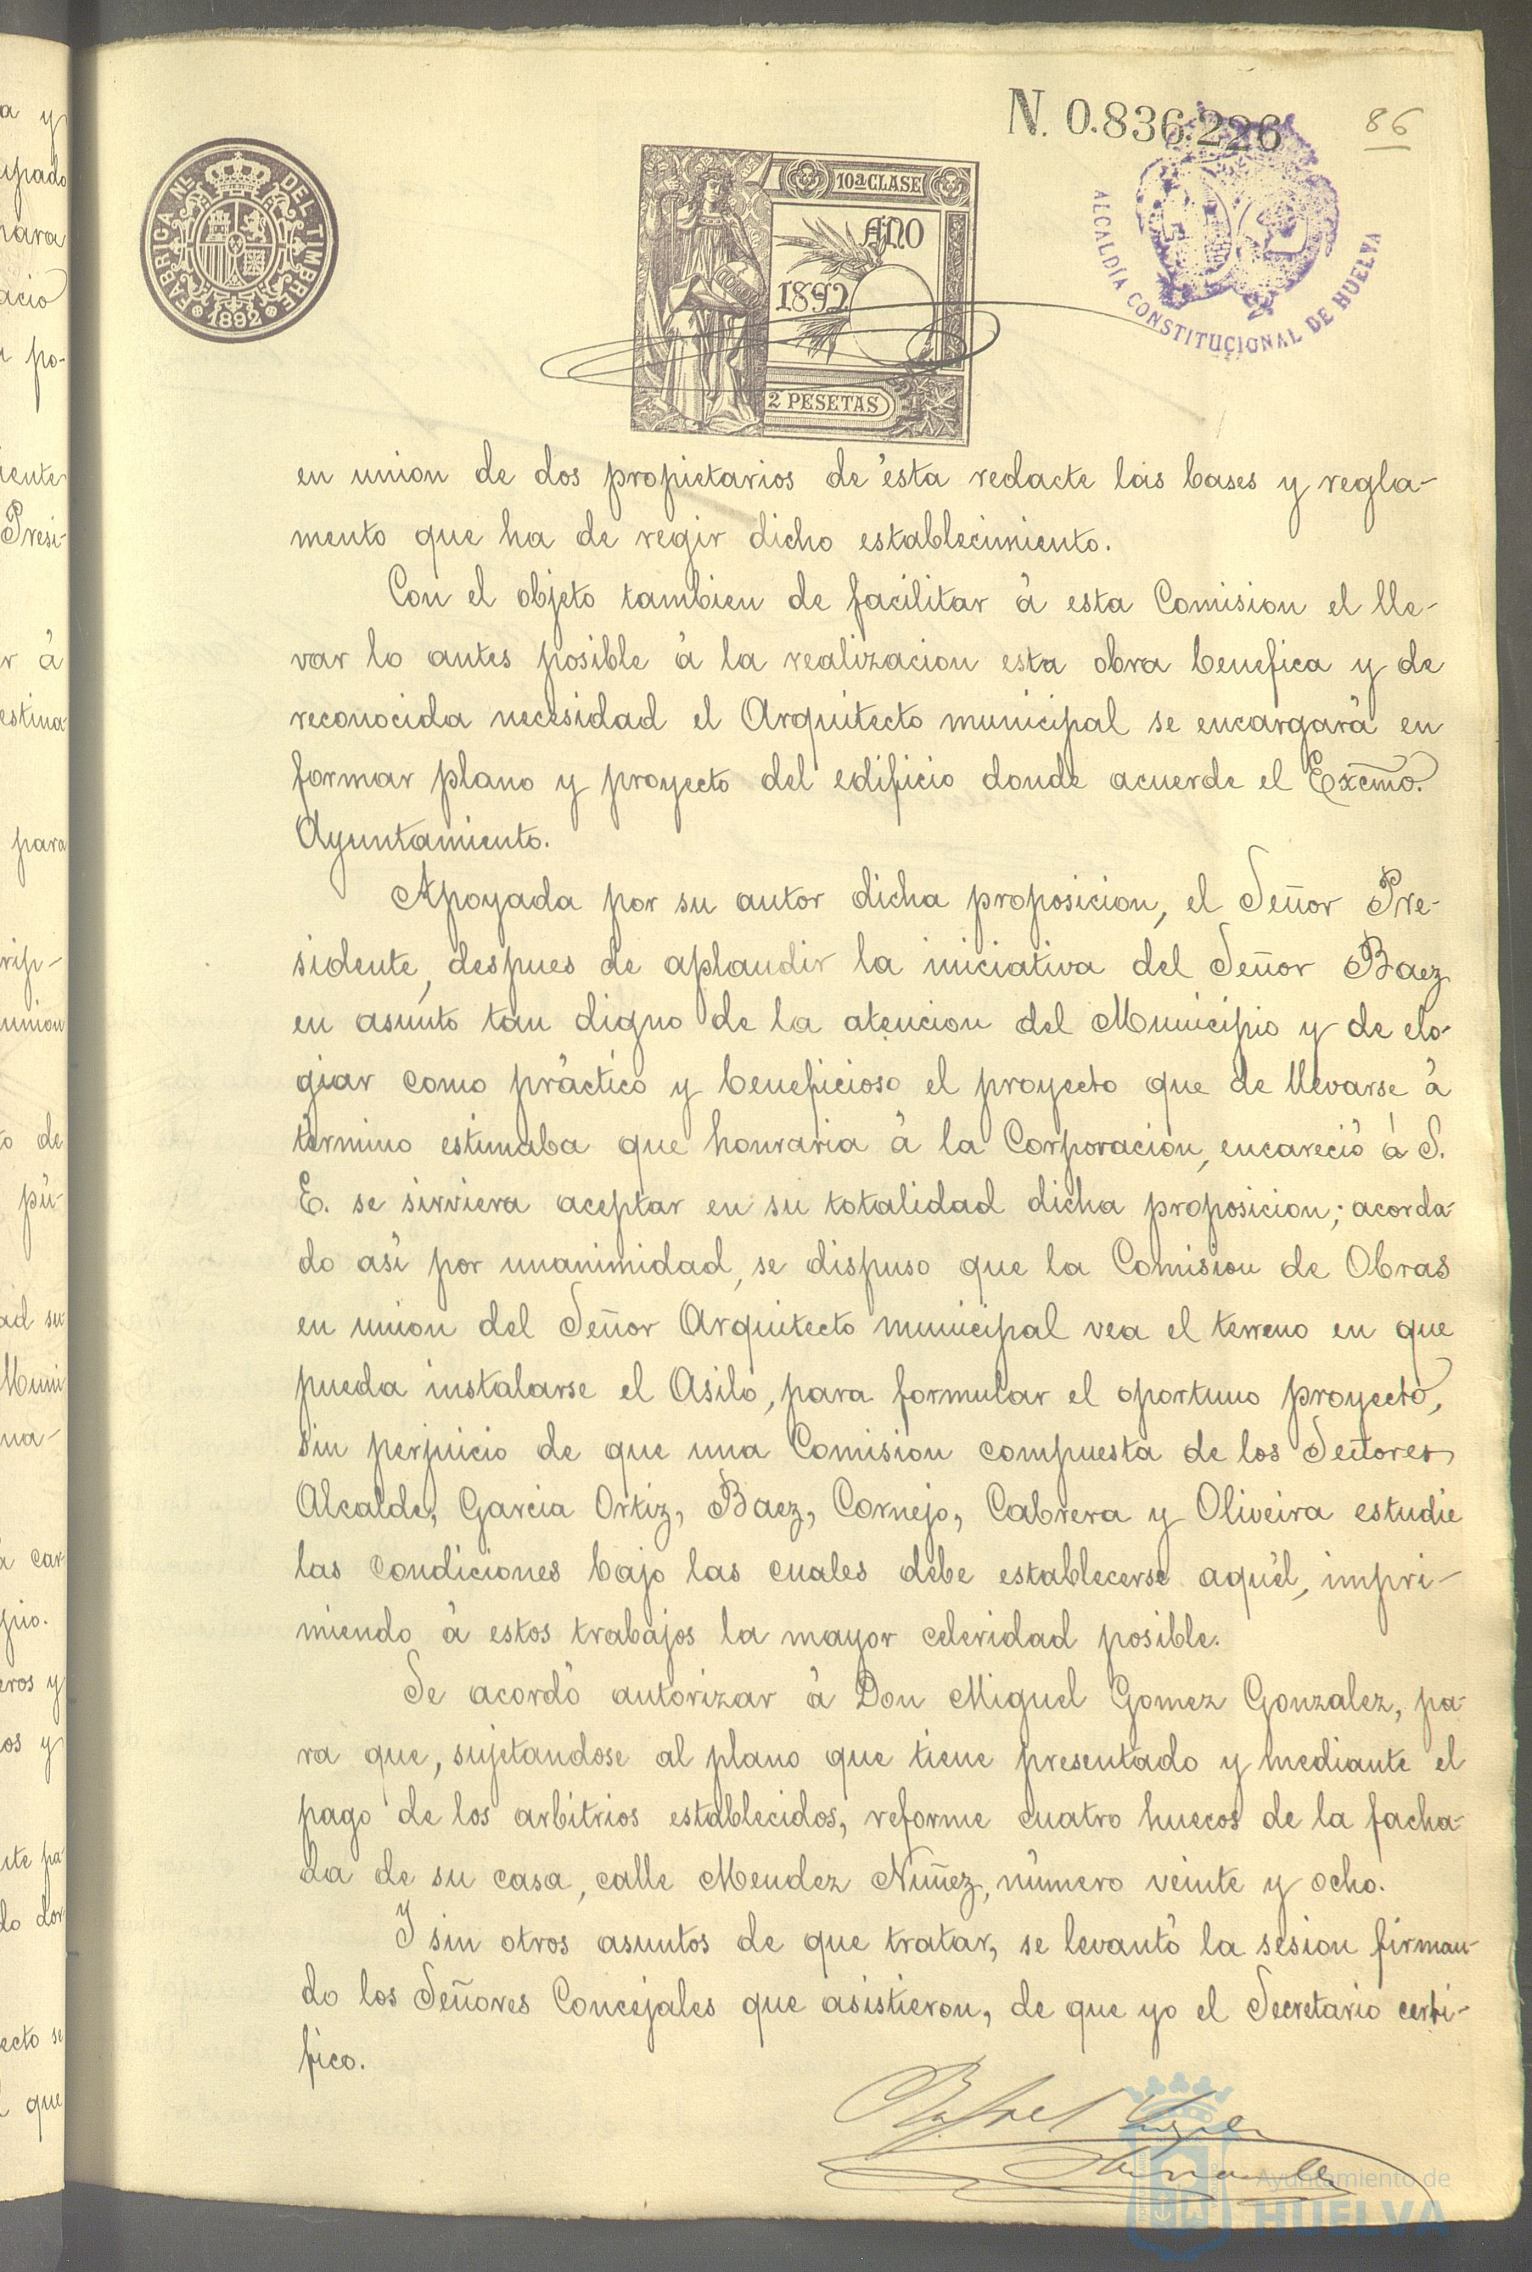 N. 0.836.226
86
FÁBRICA Nal. DEL TIMBRE
1892
10ª CLASE
AÑO
1892
2 PESETAS
ALCALDÍA CONSTITUCIONAL DE HUELVA
en union de dos propietarios de ésta redacte las bases y regla-
mento que ha de regir dicho establecimiento.
Con el objeto tambien de facilitar á esta Comision el lle-
var lo antes posible á la realizacion esta obra benefica y de
reconocida necesidad el Arquitecto municipal se encargará en
formar plano y proyecto del edificio donde acuerde el Excmo.
Ayuntamiento.
Apoyada por su autor dicha proposicion, el Señor Pre-
sidente, despues de aplaudir la iniciativa del Señor Baez
en asunto tan digno de la atencion del Municipio y de elo-
giar como práctico y beneficioso el proyecto que de llevarse á
término estimaba que honraria á la Corporacion, encareció á S.
E. se sirviera aceptar en su totalidad dicha proposicion; acorda-
do asi por unanimidad, se dispuso que la Comision de Obras
en union del Señor Arquitecto municipal vea el terreno en que
pueda instalarse el Asilo, para formular el oportuno proyecto,
sin perjuicio de que una Comision compuesta de los Señores
Alcalde, Garcia Ortiz, Baez, Cornejo, Cabrera y Oliveira estudie
las condiciones bajo las cuales debe establecerse aquél, impri-
miendo á estos trabajos la mayor celeridad posible.
Se acordó autorizar á Don Miguel Gomez Gonzalez, pa-
ra que, sujetandose al plano que tiene presentado y mediante el
pago de los arbitrios establecidos, reforme cuatro huecos de la facha-
da de su casa, calle Mendez Nuñez, número veinte y ocho.
Y sin otros asuntos de que tratar, se levantó la sesion firman-
do los Señores Concejales que asistieron, de que yo el Secretario certi-
fico.
Rafael
Ayuntamiento de
HUELVA